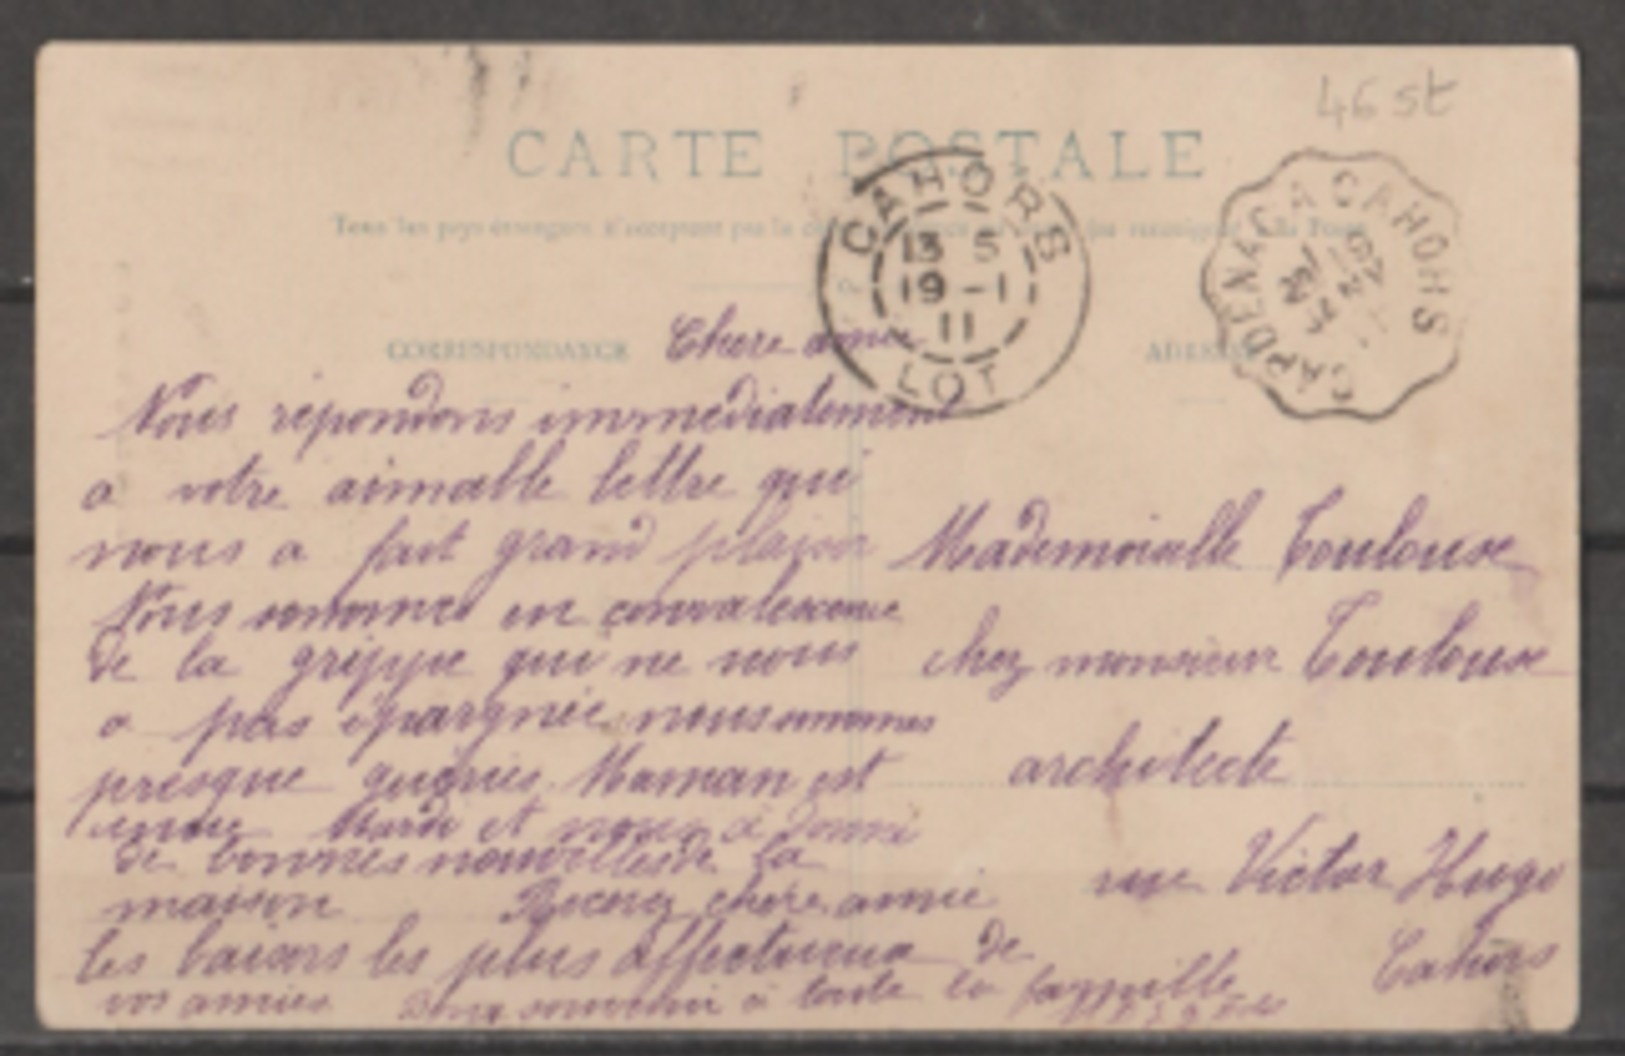 46 st
CARTE POSTALE
Tous les pays étrangers n'acceptent pas la
CAHORS
13 5
19 - 1
11
LOT
CAPDENAC A CAHORS
CORRESPONDANCE
ADRESSE
Chere amie
Nous répondons immédiatement
a votre aimable lettre qui
nous a fait grand plaisir
Nous sommes en convalescence
de la grippe qui ne nous
a pas épargnée nous sommes
presque guéries. Maman est
venue Mardi et nous a donné
de bonnes nouvelles de la
maison Recevez chère amie
les baisers les plus affectueux de
vos amies Bons souvenir à toute la famille
Mademoiselle Toulouse
chez monsieur Toulouse
architecte
rue Victor Hugo
Cahors